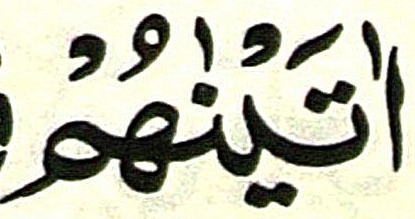 اٰتَيْنٰهُمْ